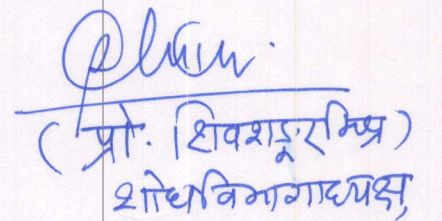 (प्रो. शिवशङ्कर मिश्र)
शोधविभागाध्यक्ष